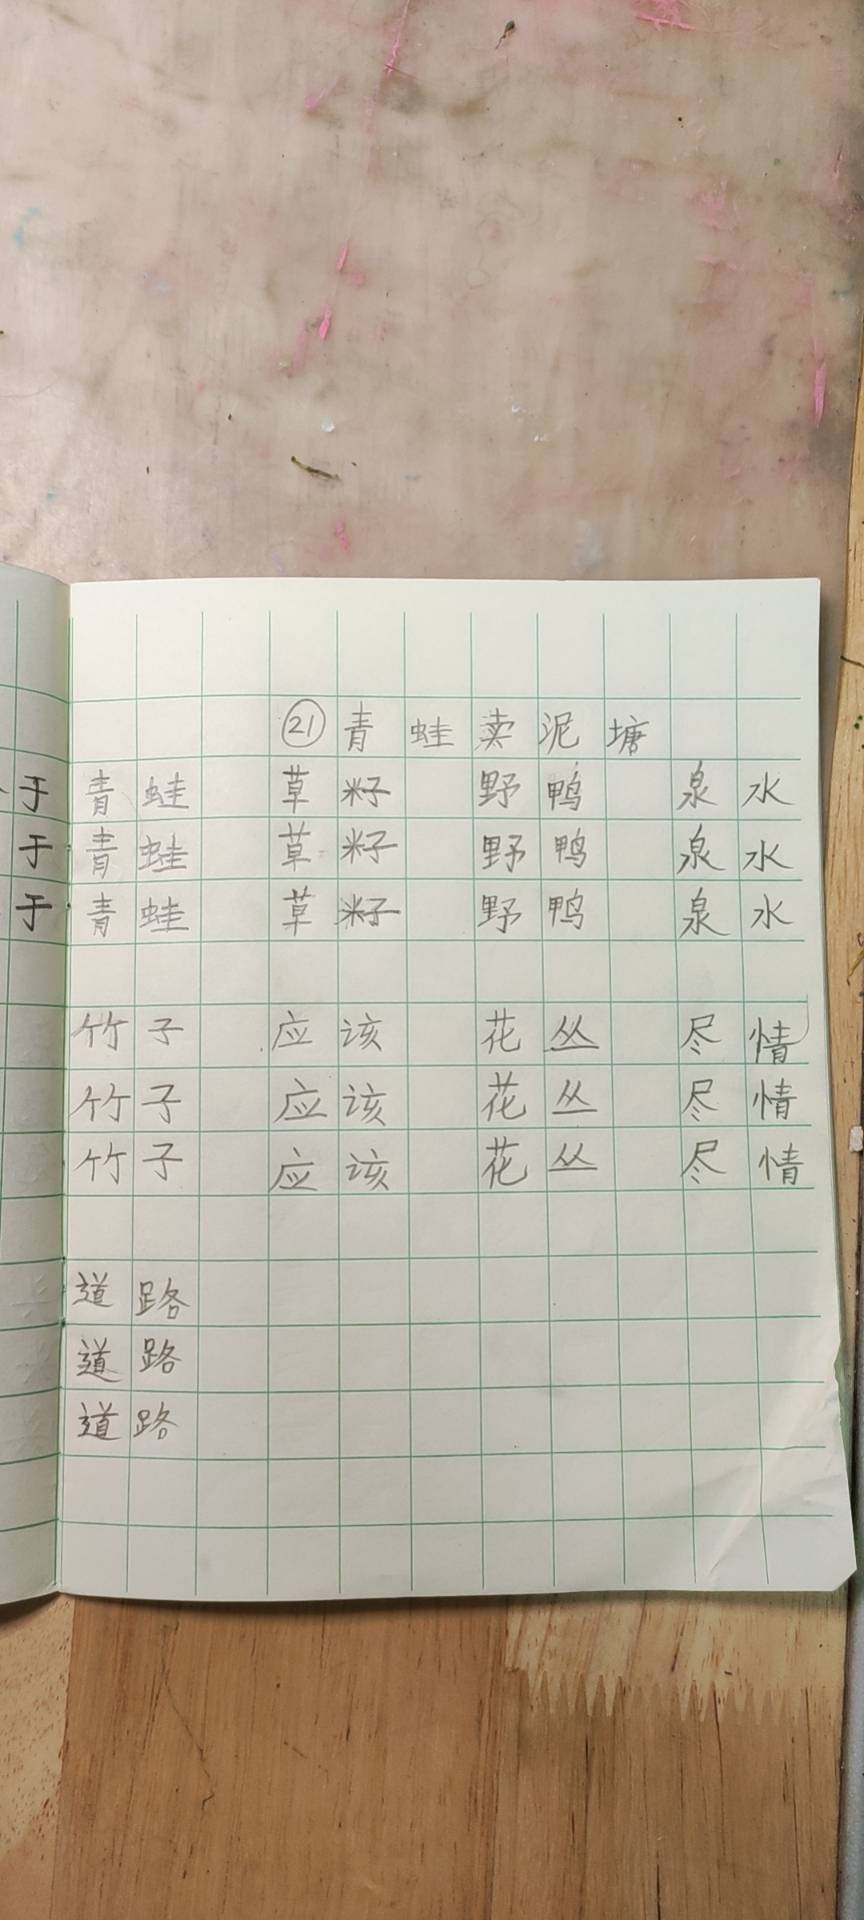 ㉑青蛙卖泥塘
于 青蛙 草籽 野鸭 泉水
于 青蛙 草籽 野鸭 泉水
于 青蛙 草籽 野鸭 泉水
竹子 应该 花丛 尽情
竹子 应该 花丛 尽情
竹子 应该 花丛 尽情
道路
道路
道路